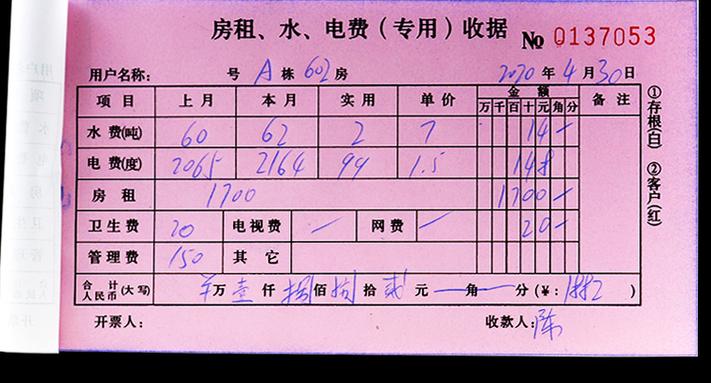 房租、水、电费（专用）收据 № 0137053
用户名称： 号 A 栋 602 房 2020 年 4 月 30 日
项目 上月 本月 实用 单价 金额 备注
万 千 百 十 元 角 分
水费(吨) 60 62 2 7 14 —
电费(度) 2065 2164 99 1.5 148
房租 1700 1700 —
卫生费 20 电视费 — 网费 — 20 —
管理费 150 其它
合计人民币(大写) 万 壹 仟 捌 佰 捌 拾 贰 元 — 角 — 分 (¥: 1882 )
开票人： 收款人： 陈
①存根(白) ②客户(红)